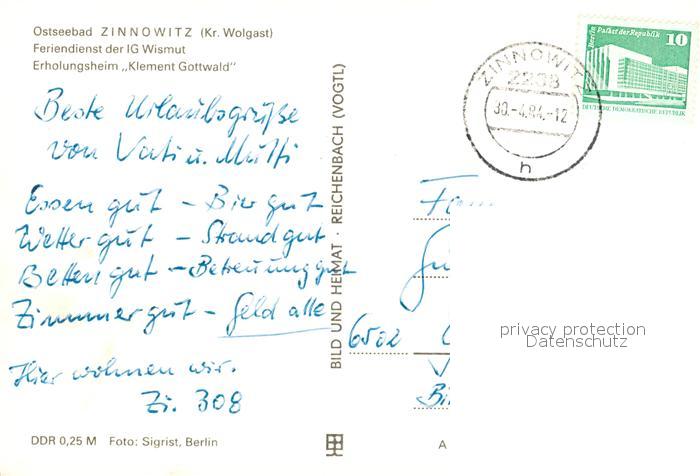 Ostseebad ZINNOWITZ (Kr. Wolgast)
Feriendienst der IG Wismut
Erholungsheim „Klement Gottwald"
Beste Urlaubsgrüße
von Vati u. Mutti
Essen gut – Bier gut
Wetter gut – Strand gut
Betten gut – Betreuung gut
Zimmer gut – Geld alle
Hier wohnen wir.
Zi. 308
DDR 0,25 M Foto: Sigrist, Berlin
BILD UND HEIMAT · REICHENBACH (VOGTL)
ZINNOWITZ
2238
30.-4.84.-12
h
Berlin Palast der Republik
10
DEUTSCHE DEMOKRATISCHE REPUBLIK
Fam
6502
A
privacy protection
Datenschutz